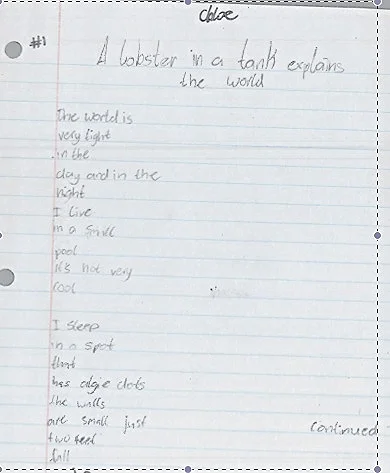 Chloe
#1
A lobster in a tank explains
the world
The world is
very light
in the
day and in the
night
I live
in a small
pool
it's not very
cool
I sleep
in a spot
that
has algie clots
the walls
are small just
two feet
tall
continued